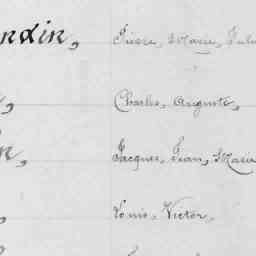 ndin, Pierre, Marie, Jul
Charles, Auguste,
n, Jacques, Jean, Marie
Louis, Victor,